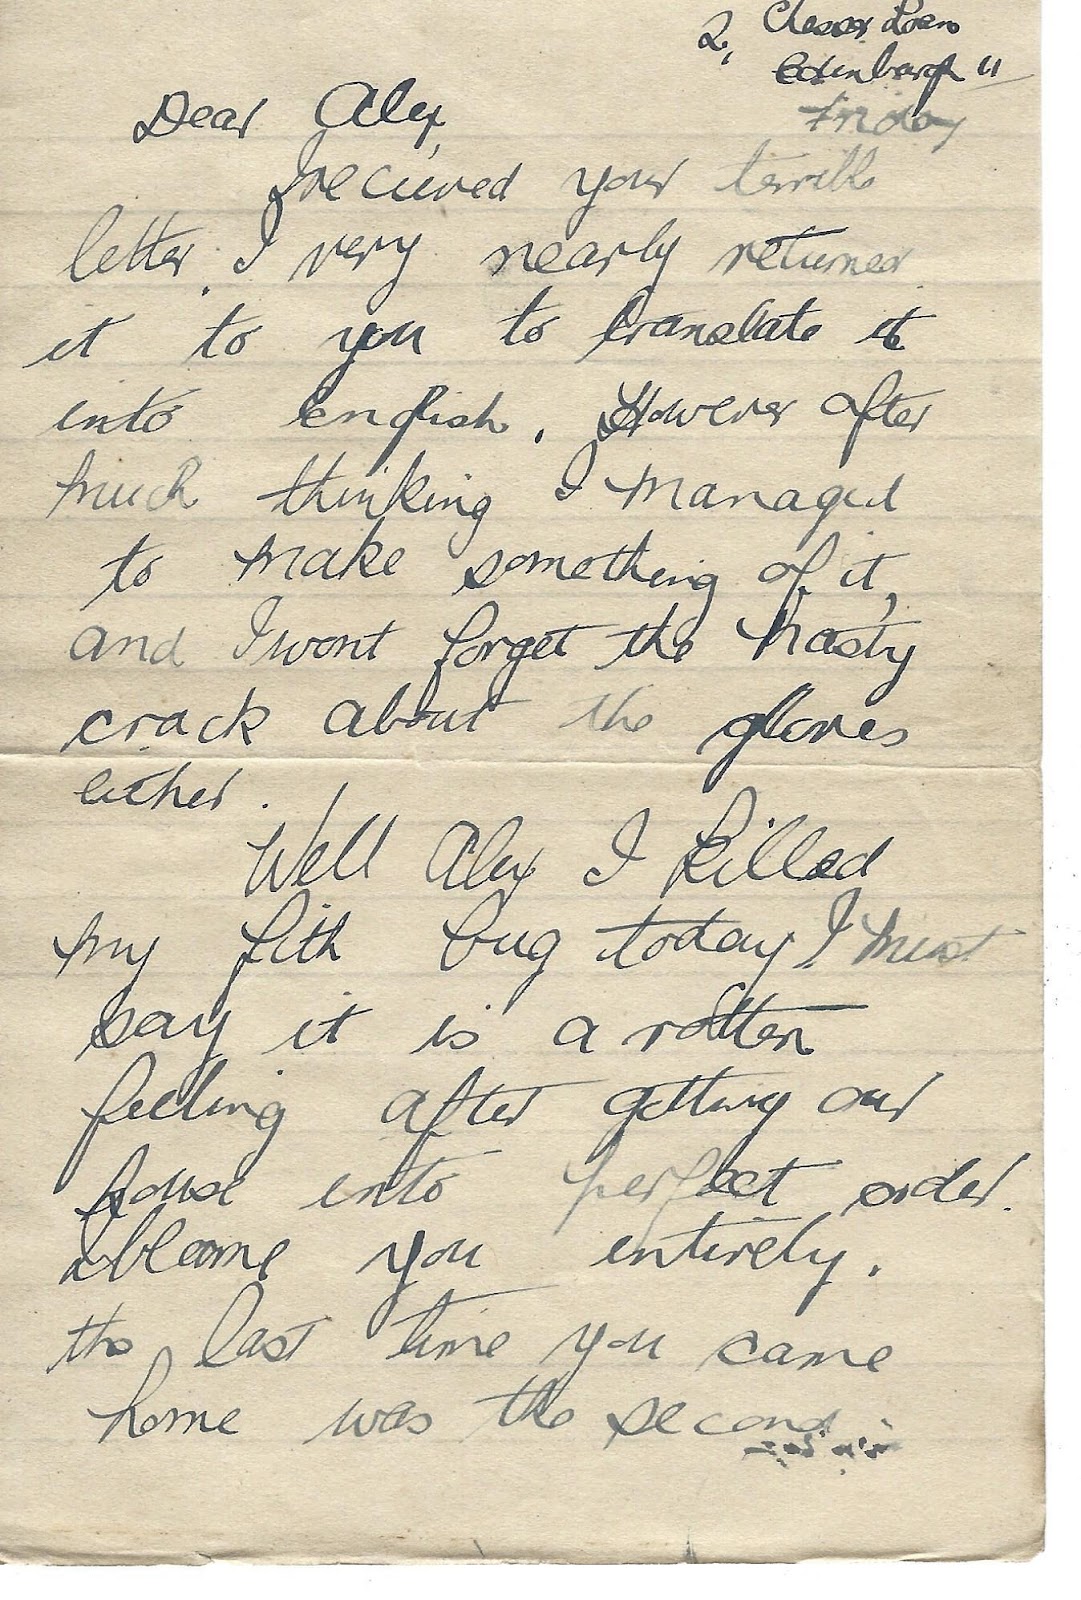 2, Chesser Loan
Edinburgh 11
Friday
Dear Alex,
I recieved your terrible
letter. I very nearly returned
it to you to translate it
into english. However after
much thinking I managed
to make something of it,
and I wont forget the nasty
crack about the gloves
either.
Well Alex I killed
my fith bug today I must
say it is a rotten
feeling after getting our
house into perfect order.
I blame you entirely.
the last time you came
home was the second